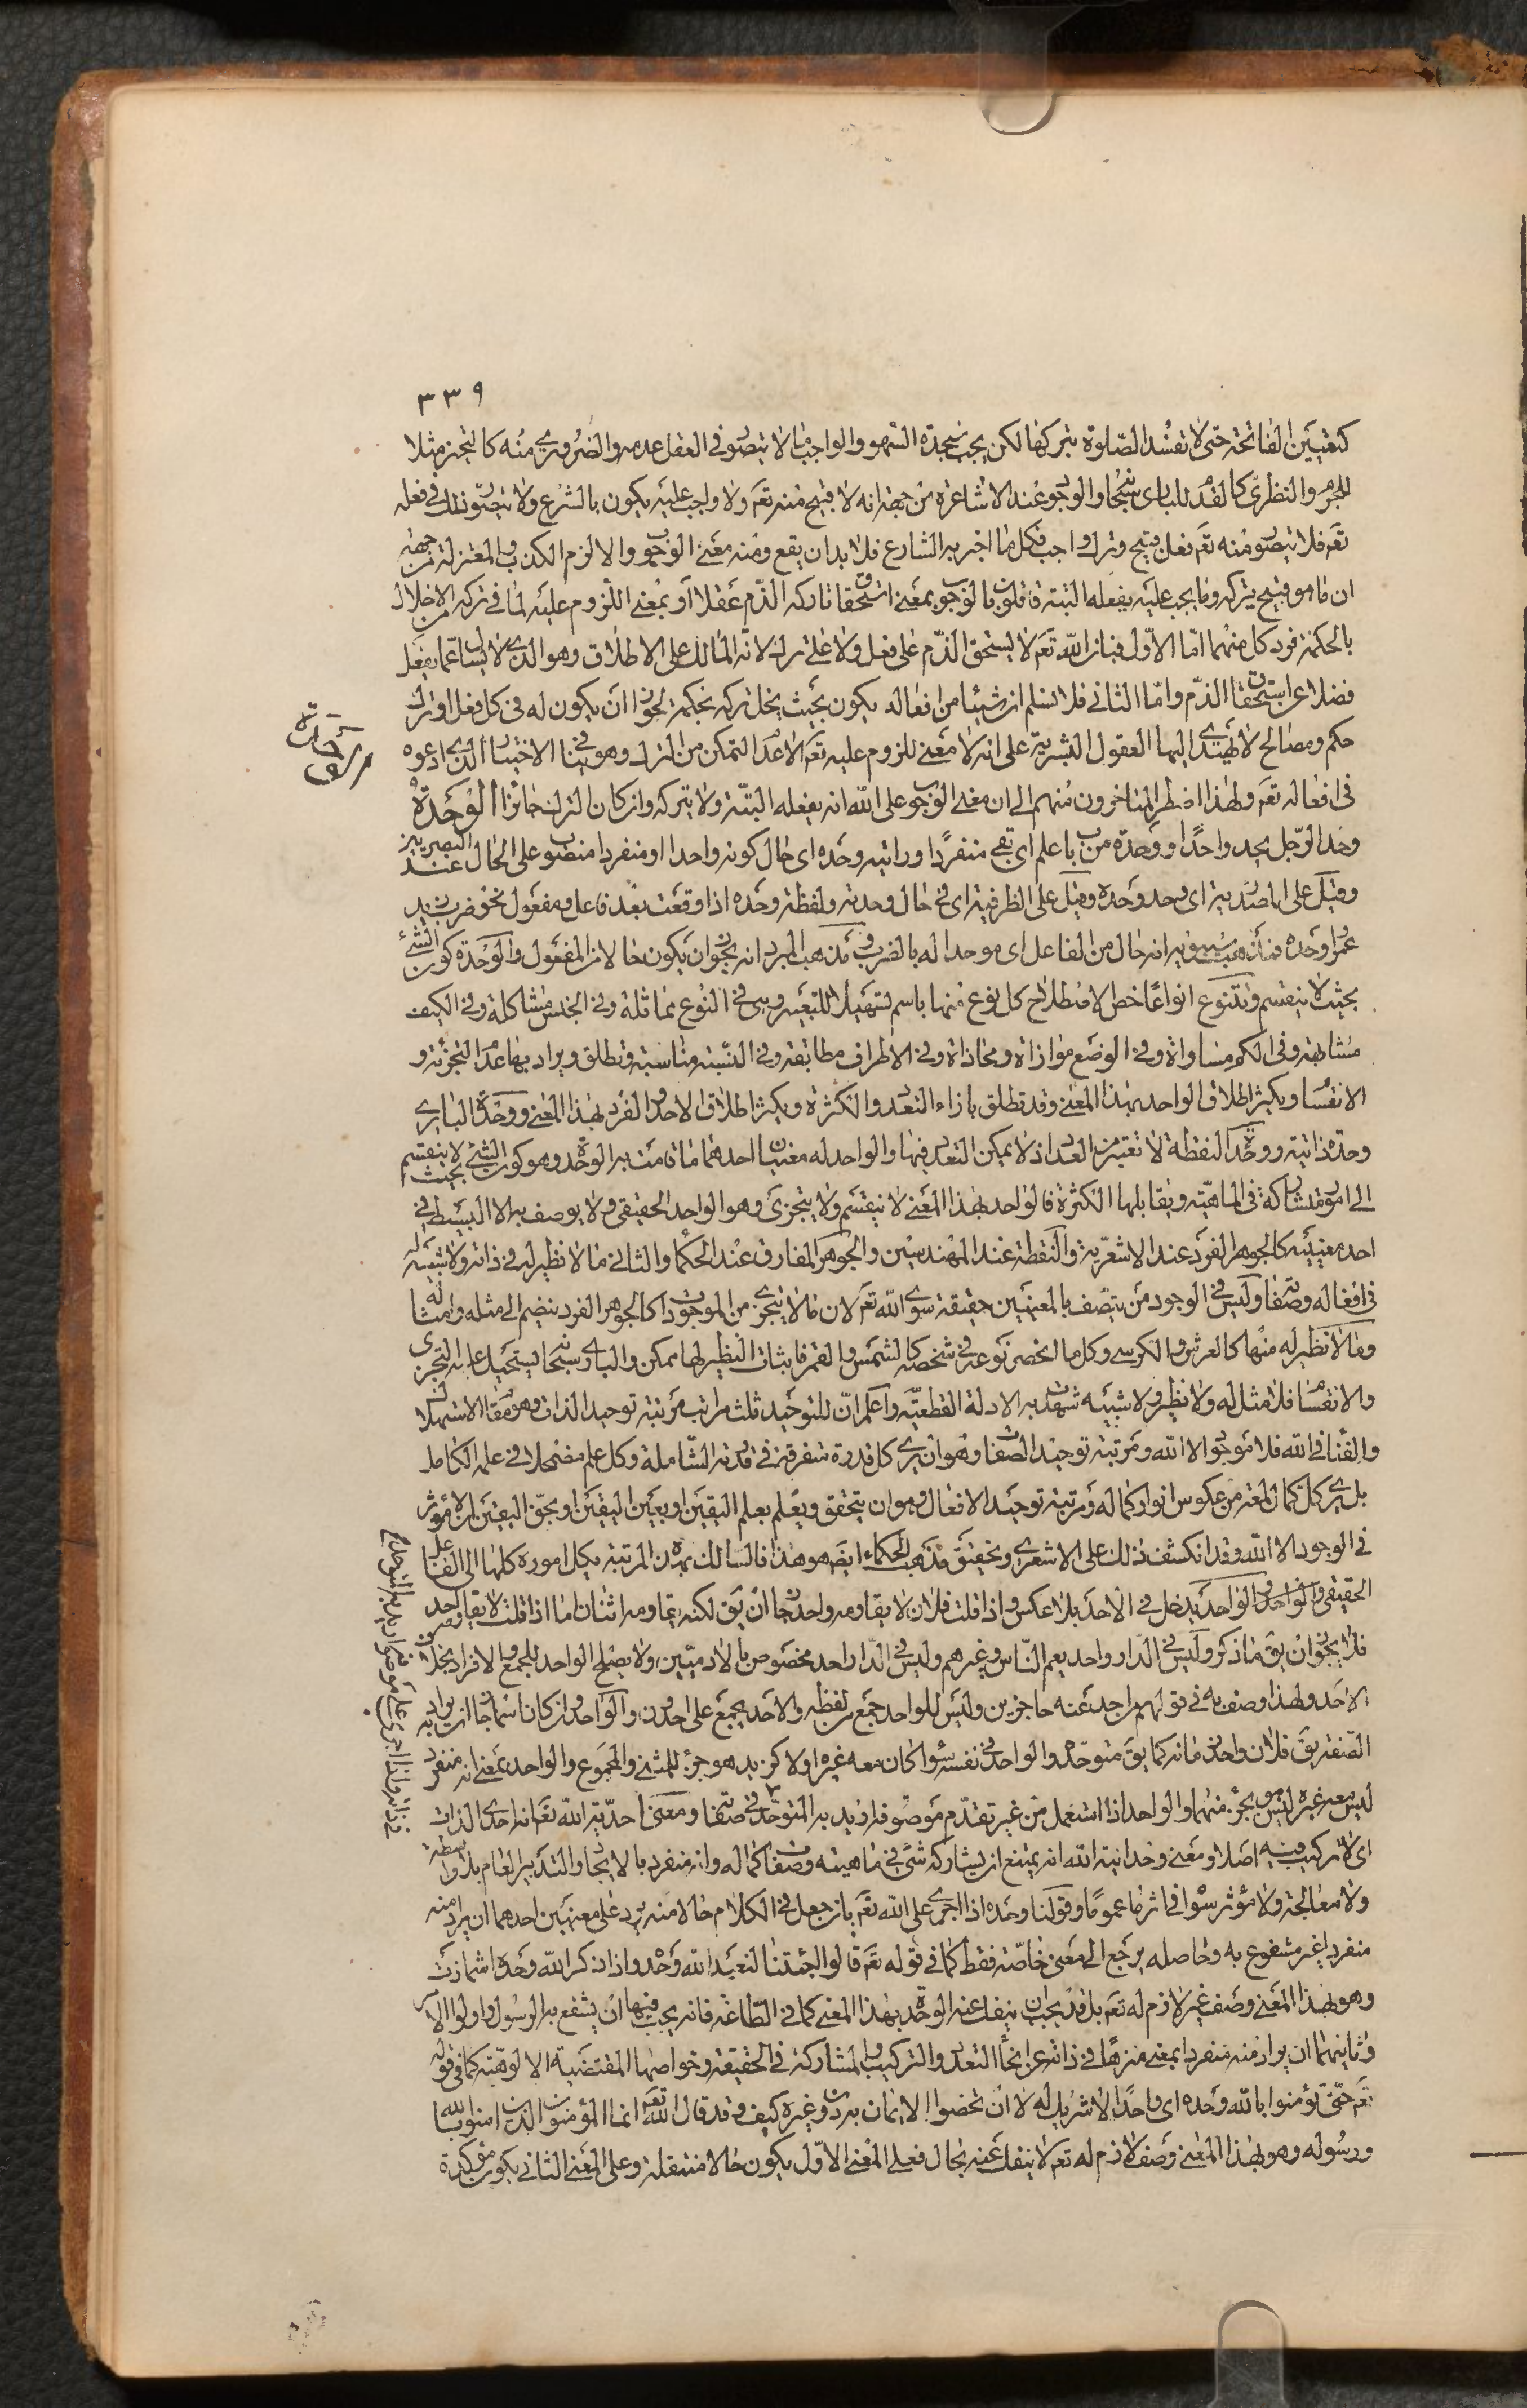 ٣٣٩
كتعيين الفاتحة حتى لا تفسد الصلوة بتركها لكن يجب سجدة السهو والواجب ما لا يتصور في العقل عدمه والضروري منه كالتحيز مثلا
للجرم والنظري كالقدم للباري سبحانه والوجوب عند الاشاعرة من جهة انه لا قبيح منه تعم ولا واجب عليه يكون بالشرع ولا يتصور ذلك في فعله
تعم فلا يتصور منه تعم فعل قبيح وترك واجب فكل ما اخبر به الشارع فلا بد ان يقع ومنه معنى الوجوب والا لزم الكذب والمعتزلة من جهة
ان ما هو قبيح يتركه وما يجب عليه يفعله البتة قائلون بالوجوب بمعنى استحقاق تاركه الذم عقلا او بمعنى اللزوم عليه لما في تركه من الاخلال
بالحكمة فرد كل منهما اما الاول فبان الله تعم لا يستحق الذم على فعل ولا على ترك لانه المالك على الاطلاق وهو الذي لا يسأل عما يفعل
فضلا عن استحقاق الذم واما الثاني فلا نسلم ان شيئا من افعاله يكون بحيث يخل تركه بحكمة لجواز ان يكون له في كل فعل او ترك
حكم ومصالح لا تهتدى اليها العقول البشرية على انه لا معنى للزوم عليه تعم الا عدم التمكن من الترك وهو ينافي الاختيار الذي ادعوه
في افعاله تعم ولهذا اضطر المتاخرون منهم الى ان معنى الوجوب على الله انه يفعله البتة ولا يتركه وان كان الترك جائزا الوحدة
وحد الرجل يحد واحدا ووحدة من باب علم اى بقى منفردا ورايته وحده اى حال كونه واحدا او منفردا منصوب على الحال عند البصريين
وقيل على المصدرية اى وحد وحده وقيل على الظرفية اى في حال وحدته ولفظة وحده اذا وقعت بعد فاعل ومفعول نحو ضرب زيد
عمرا وحده فمذهب سيبويه انه حال من الفاعل اى موحدا له بالضرب ومذهب المبرد انه يجوز ان يكون حالا من المفعول والوحدة كون الشئ
بحيث لا ينقسم وتتنوع انواعا خص الاصطلاح كل نوع منها باسم تسهيلا للتعبير وهى في النوع مماثلة وفي الجنس مشاكلة وفي الكيف
مشابهة وفي الكم مساواة وفي الوضع موازاة ومحاذاة وفي الاطراف مطابقة وفي النسبة مناسبة وتطلق ويراد بها عدم التجزئة و
الانقسام ويكثر اطلاق الواحد بهذا المعنى وقد تطلق بازاء التعدد والكثرة ويكثر اطلاق الاحد والفرد بهذا المعنى ووحدة الباري
وحدة ذاتية ووحدة النقطة لا تعتبر من العدد اذ لا يمكن التعدد فيها والواحد له معنيان احدهما ما قامت به الوحدة وهو كون الشئ بحيث لا ينقسم
الى امور متشاركة في الماهية ويقابلها الكثرة فالواحد بهذا المعنى لا ينقسم ولا يتجزى وهو الواحد الحقيقي ولا يوصف به الا البسيط في
احد معنييه كالجوهر الفرد عند الاشعرية والنقطة عند المهندسين والجوهر المفارق عند الحكما والثاني ما لا نظير له في ذاته ولا شبيه له
في افعاله وصفاته وليس في الوجود من يتصف بالمعنيين حقيقة سوى الله تعم لان ما لا يتجزى من الموجودات كالجوهر الفرد ينضم الى مثله وامثاله
وما لا نظير له منها كالعرش والكرسي وكل ما انحصر نوعه في شخصه كالشمس والقمر فاثبات النظير لها ممكن والباري سبحانه يستحيل عليه التجزى
والانقسام فلا مثل له ولا نظير ولا شبيه شهدت به الادلة القطعية واعلم ان للتوحيد ثلث مراتب مرتبة توحيد الذات وهو مقام الاستهلاك
والفناء في الله فلا موجود الا الله ومرتبة توحيد الصفات وهو ان يرى كل قدرة متفرقة في قدرته الشاملة وكل علم مضمحلا في علمه الكامل
بل يرى كل كمال لمعة من عكوس انوار كماله ومرتبة توحيد الافعال وهو ان يتحقق ويعلم بعلم اليقين او بعين اليقين او بحق اليقين ان لا مؤثر
في الوجود الا الله وقد انكشف ذلك على الاشعرى وتحقيق مذهب الحكماء ايضم هو هذا فالسالك بهذه المرتبة يكل اموره كلها الى الفاعل
الحقيقي والواحد والواحد يدخل في الاحد بلا عكس واذا قلت فلان لا يقاومه واحد جاز ان يق لكنه يقاومه اثنان اما اذا قلت لا يقاومه احد
فلا يجوز ان يق ما ذكر وليس في الدار واحد يعم الناس وغيرهم وليس في الدار احد مخصوص بالادميين ولا يصلح الواحد للجمع والافراد بخلاف
الاحد ولهذا وصف به في قوله من احد عنه حاجزين وليس للواحد جمع من لفظه والاحد يجمع على احدون والواحد وان كان اسما جاز ان يراد به
الصفة يق فلان واحد زمانه كما يق متوحد والواحد في نفسه سواء كان معه غيره او لا كزيد هو جزء للمثنى والمجموع والواحد بمعنى انه منفرد
ليس معه غيره ليس هو بجزء منهما والواحد اذا استعمل من غير تقدم موصوف اريد به المتوحد في صفاته ومعنى احدية الله تعم انه احدى الذات
اى لا تركيب فيه اصلا ومعنى وحدانية الله انه يمتنع ان يشاركه شئ في ماهيته وصفات كماله وانه منفرد بالايجاد والتدبير العام بلا واسطة
ولا معالجة ولا مؤثر سواه في اثر ما عموما وقولنا وحده اذا اجرى على الله تعم بان جعل في الكلام حالا منه يرد على معنيين احدهما ان يراد منه
منفردا غير مشفوع به وحاصله يرجع الى معنى خاصة فقط كما في قوله تعم قالوا اجئتنا لنعبد الله وحده واذا ذكر الله وحده اشمازت
وهو بهذا المعنى وصف غير لازم له تعم بل قد يجب ان ينفك عنه الوحدة بهذا المعنى كما في الطاعة فانه يجب فيها ان يشفع به الرسول واولوا الامر
وثانيهما ان يراد منه منفردا بمعنى منزها في ذاته عن انحاء التعدد والتركيب والمشاركة في الحقيقة وخواصها المقتضية الالوهية كما في قوله
تعم حتى تؤمنوا بالله وحده اى واحدا لا شريك له لا ان تخصوا الايمان به دون غيره كيف وقد قال الله تعم انما المؤمنون الذين امنوا بالله
ورسوله وهو بهذا المعنى وصف لازم له تعم لا ينفك عنه بحال فعلى المعنى الاول يكون حالا منتقلة وعلى المعنى الثاني يكون مؤكدة